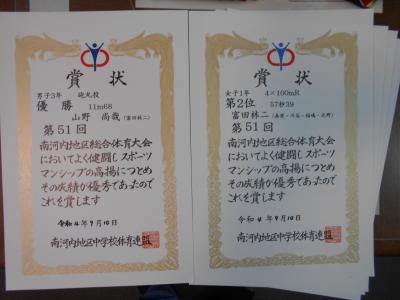 賞状
男子3年 砲丸投
優勝 11m68
山野 尚哉(富田林二)
第51回
南河内地区総合体育大会
においてよく健闘しスポーツ
マンシップの高揚につとめ
その成績が優秀であったので
これを賞します
令和4年9月10日
南河内地区中学校体育連盟
賞状
女子1年 4×100mR
第2位 57秒39
富田林二
第51回
南河内地区総合体育大会
においてよく健闘しスポーツ
マンシップの高揚につとめ
その成績が優秀であったので
これを賞します
令和4年9月10日
南河内地区中学校体育連盟